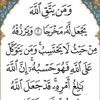 وَمَنْ يَتَّقِ اللَّهَ
يَجْعَلْ لَهُ مَخْرَجًا ۝ وَيَرْزُقْهُ
مِنْ حَيْثُ لَا يَحْتَسِبُ وَمَنْ يَتَوَكَّلْ
عَلَى اللَّهِ فَهُوَ حَسْبُهُ إِنَّ اللَّهَ
بَالِغُ أَمْرِهِ قَدْ جَعَلَ اللَّهُ